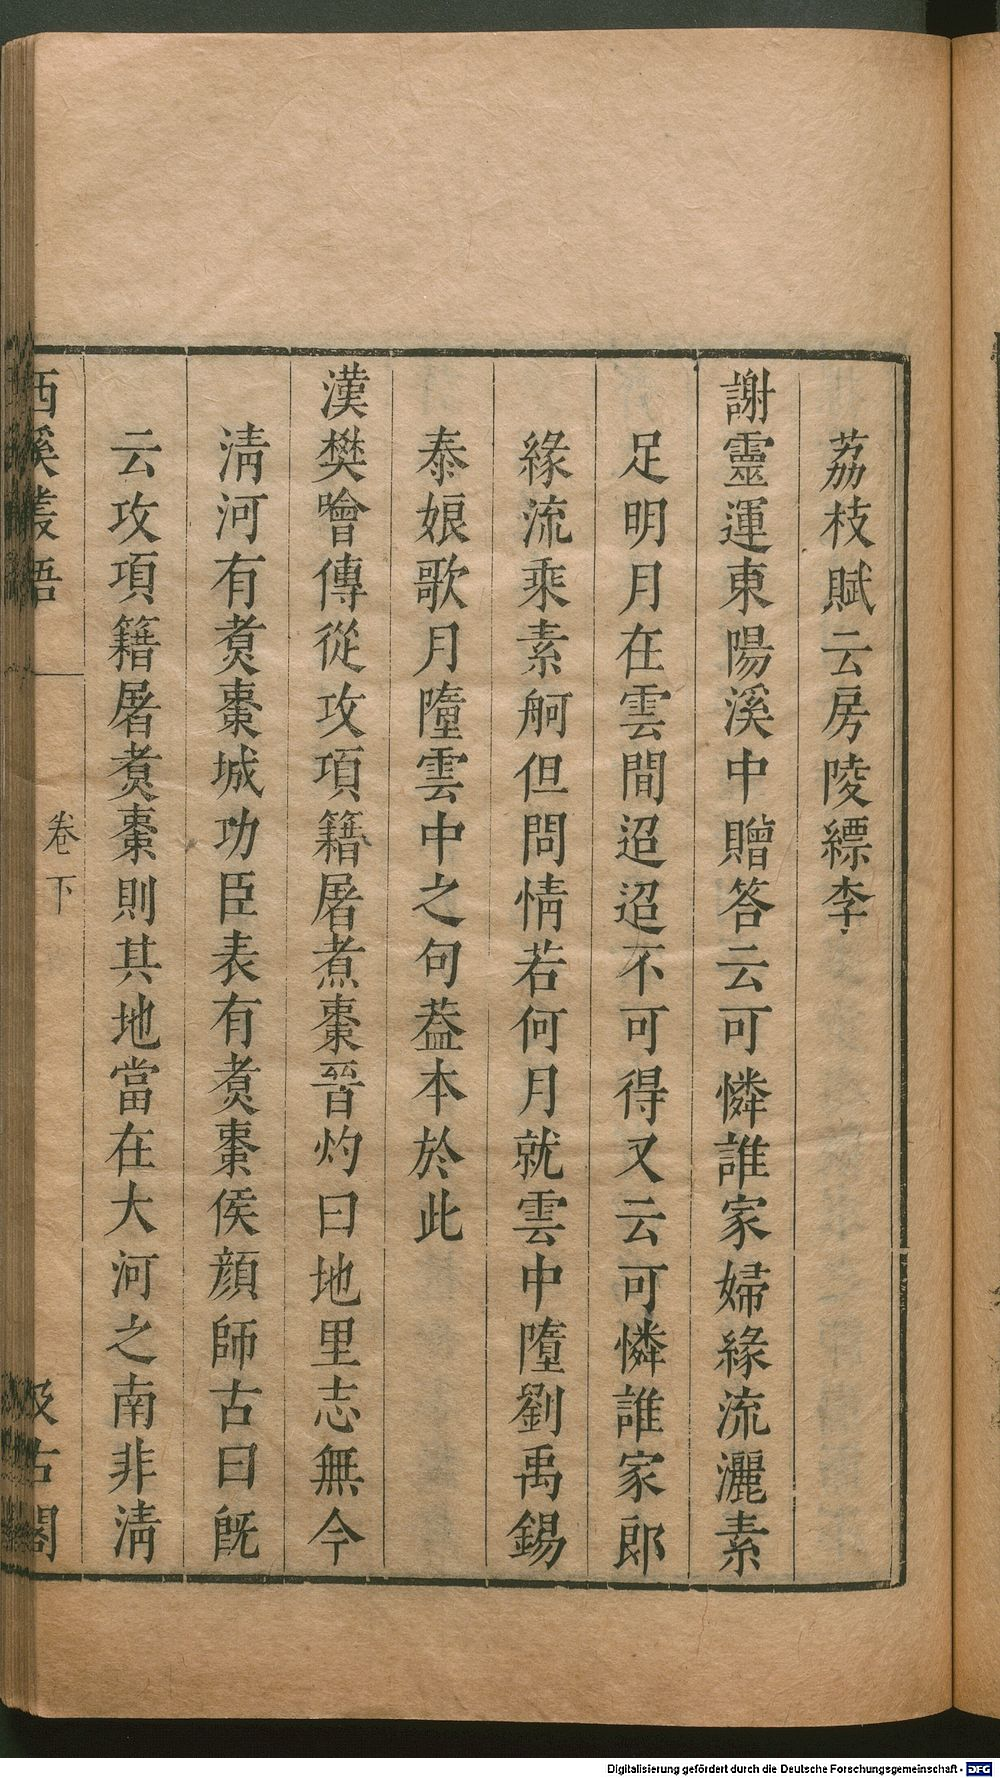 荔枝賦云房陵縹李
謝靈運東陽溪中贈答云可憐誰家婦緣流灑素
足明月在雲間迢迢不可得又云可憐誰家郎
緣流乘素舸但問情若何月就雲中墮劉禹錫
泰娘歌月墮雲中之句葢本於此
漢樊噲傳從攻項籍屠煮棗晉灼曰地里志無今
清河有煑棗城功臣表有煑棗侯顔師古曰旣
云攻項籍屠煑棗則其地當在大河之南非淸
西溪叢語
卷下
汲古閣
Digitalisierung gefördert durch die Deutsche Forschungsgemeinschaft - DFG